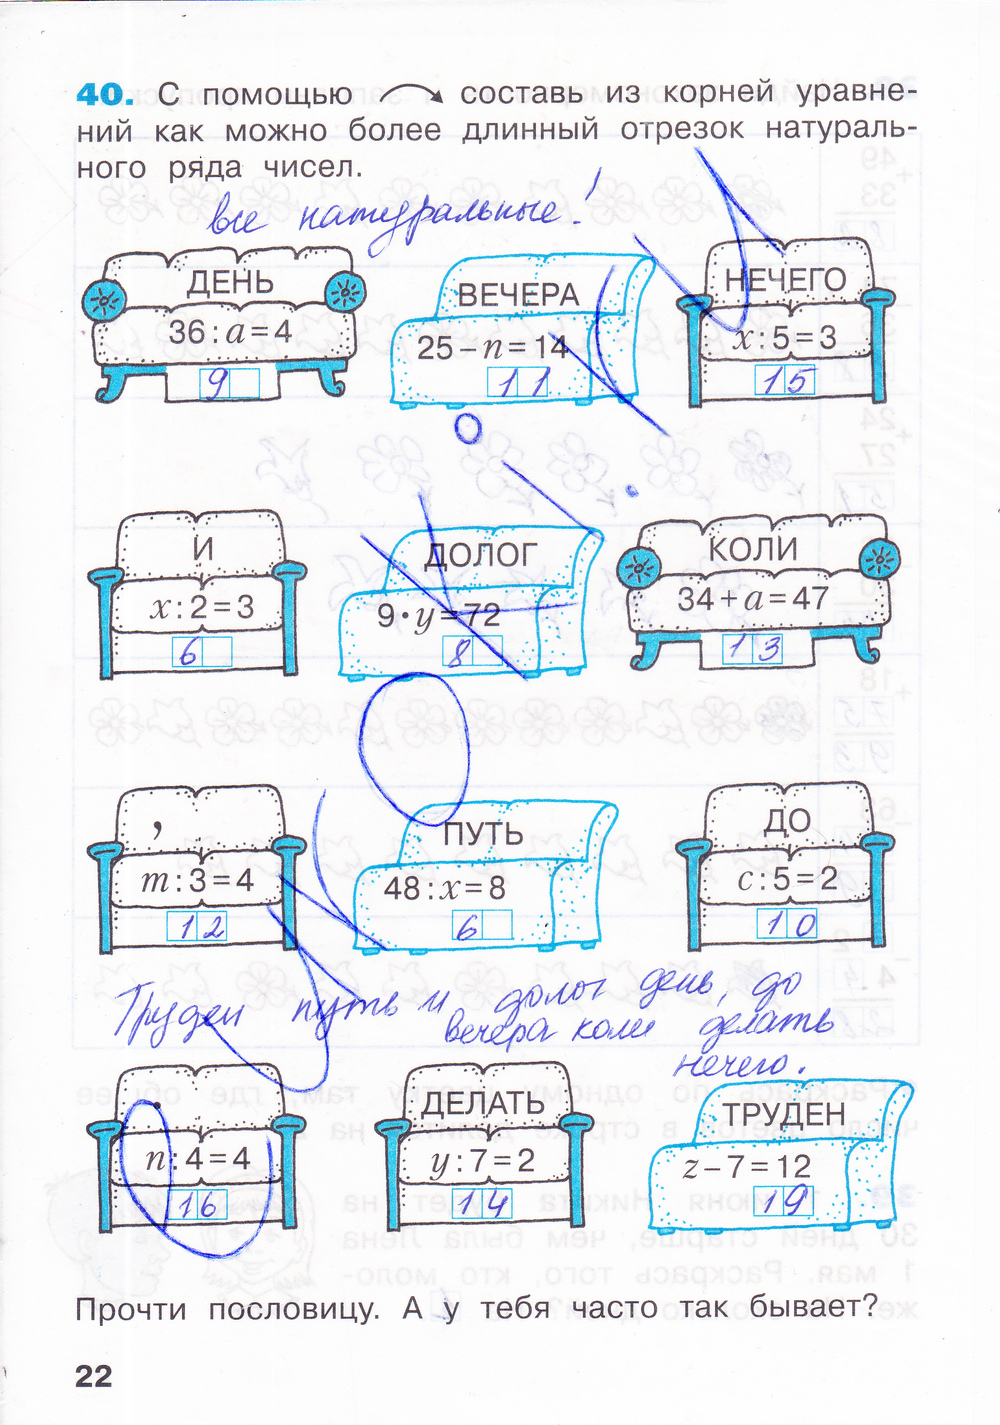 40. С помощью составь из корней уравне-
ний как можно более длинный отрезок натураль-
ного ряда чисел.
все натуральные!
ДЕНЬ
36 : a = 4
9
ВЕЧЕРА
25 – n = 14
11
НЕЧЕГО
x : 5 = 3
15
И
x : 2 = 3
6
ДОЛОГ
9 · y = 72
8
КОЛИ
34 + a = 47
13
,
m : 3 = 4
12
ПУТЬ
48 : x = 8
6
ДО
c : 5 = 2
10
Труден путь и долог день, до
вечера коли делать
нечего.
.
n : 4 = 4
16
ДЕЛАТЬ
y : 7 = 2
14
ТРУДЕН
z – 7 = 12
19
Прочти пословицу. А у тебя часто так бывает?
22